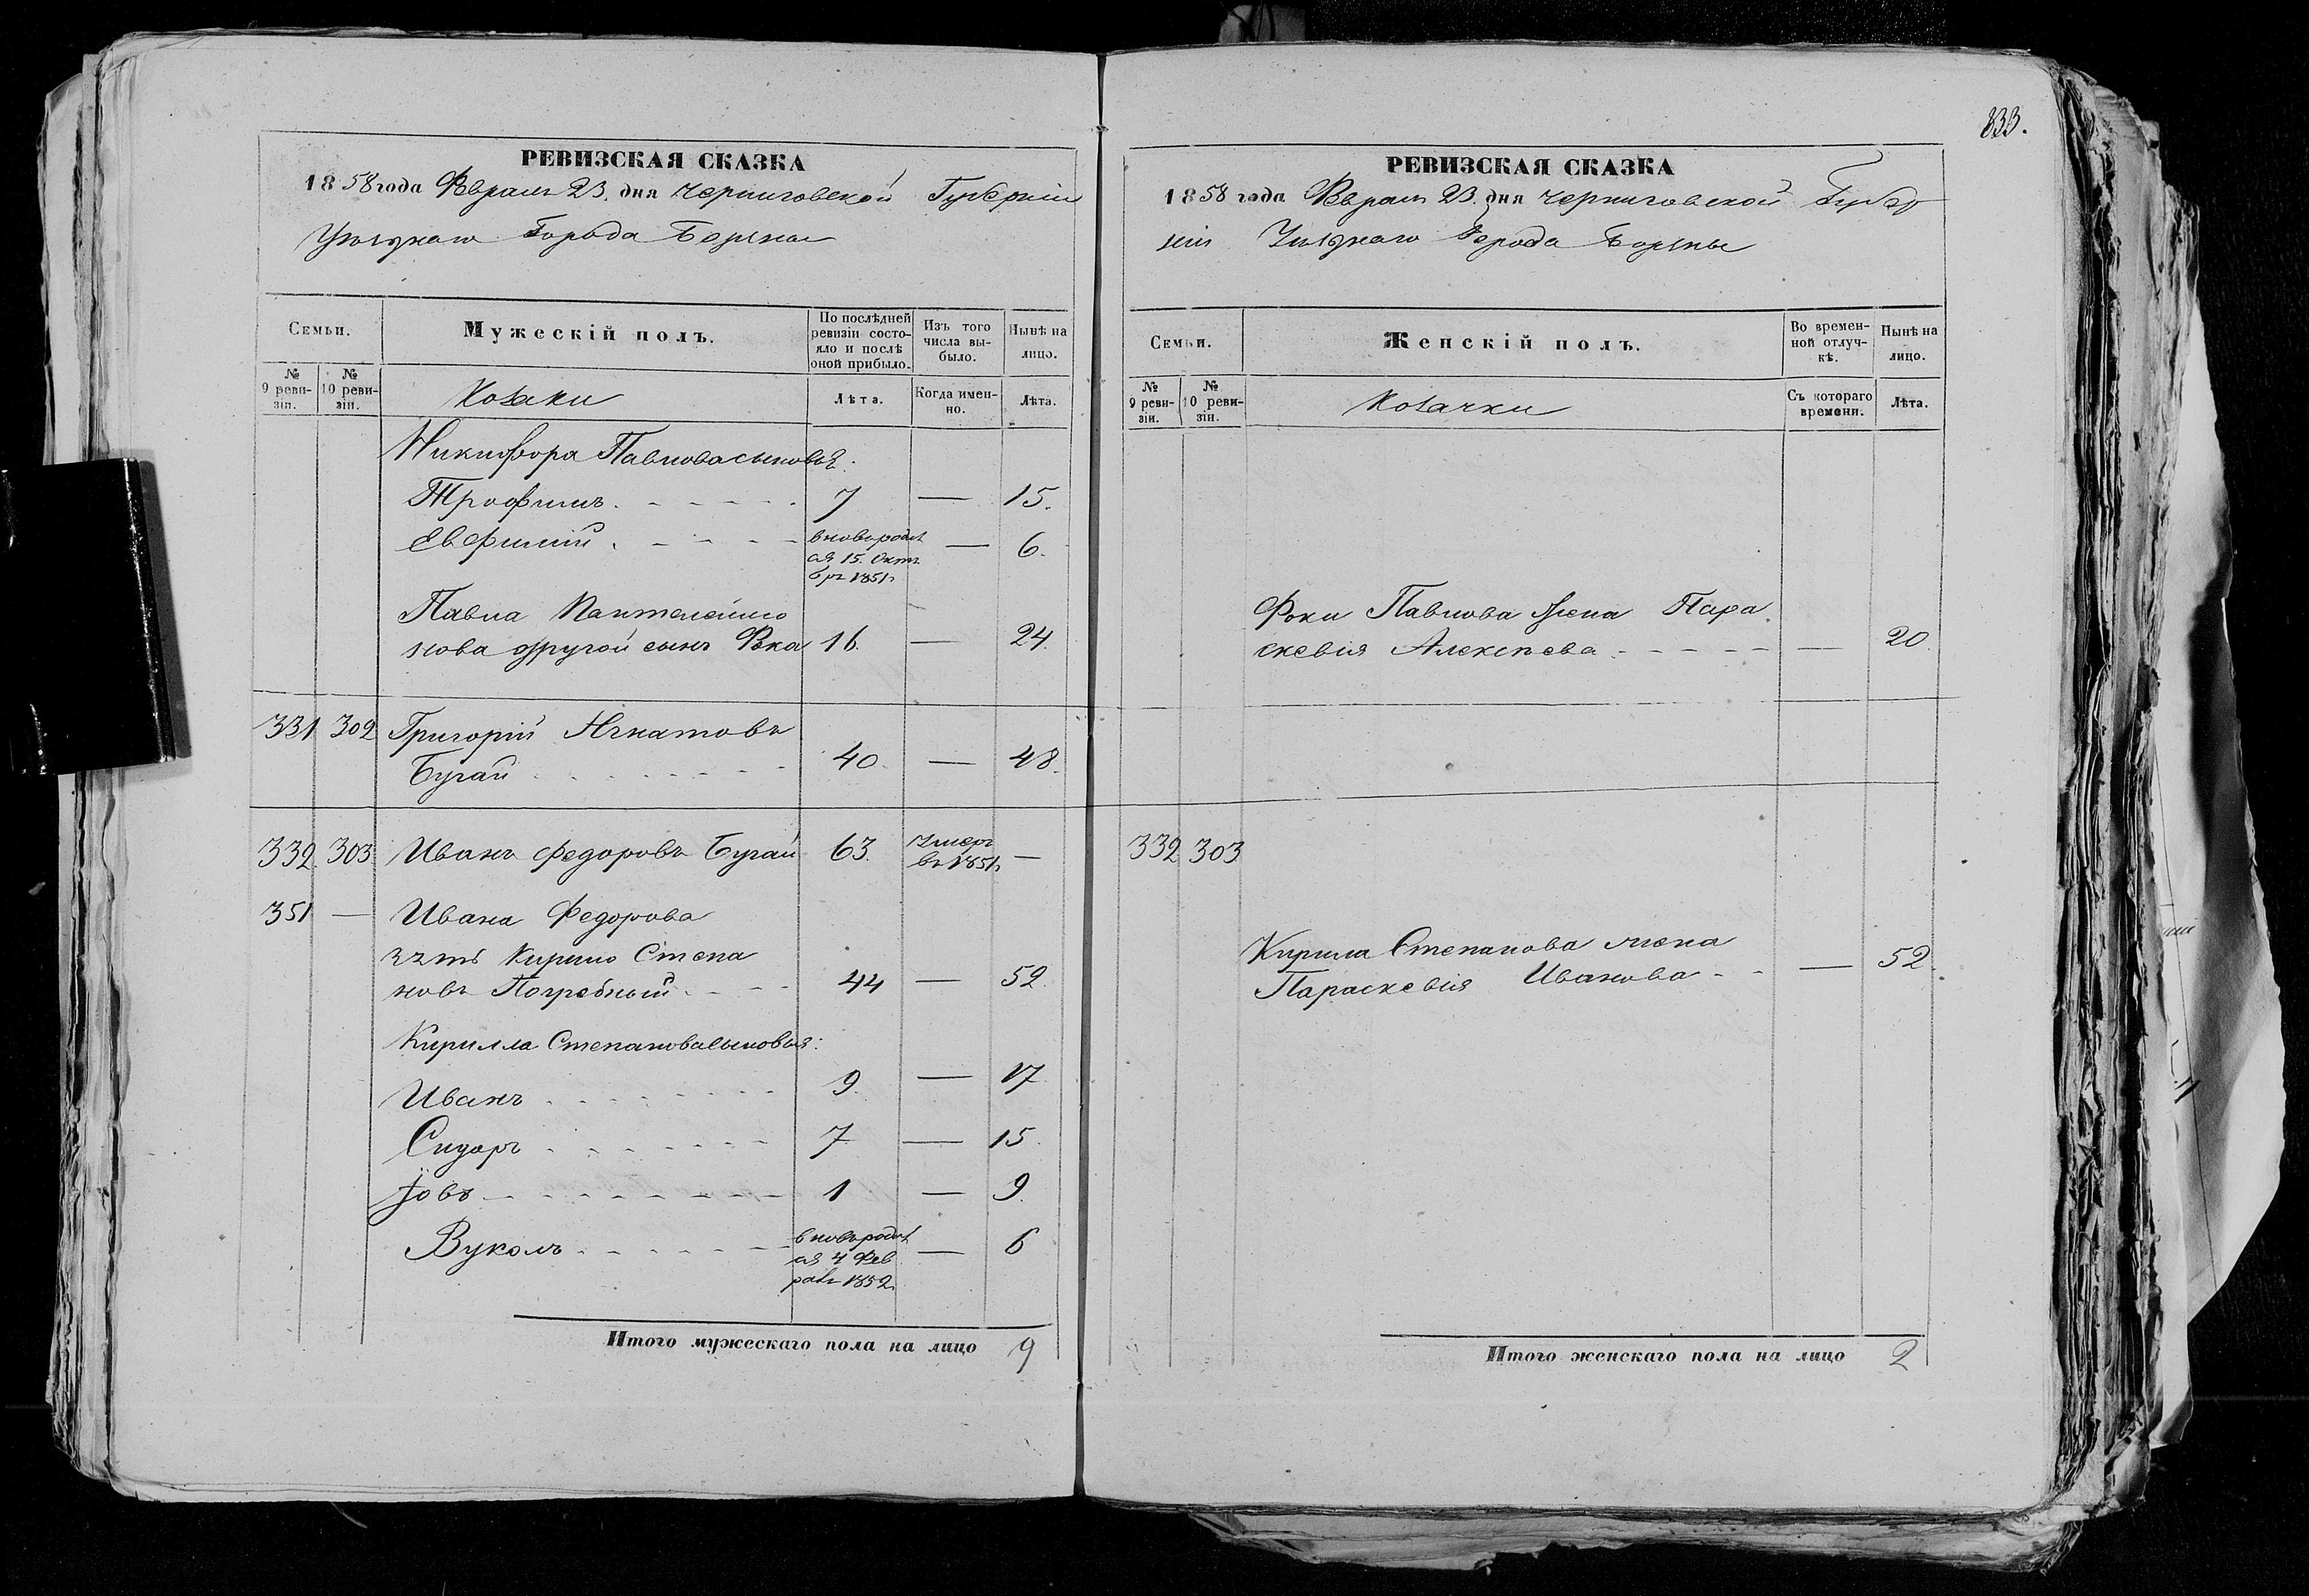 833.
РЕВИЗСКАЯ СКАЗКА
1858 года Февраля 23. дня Черниговской Губерніи
Уѣзднаго Города Борзны
Семьи.
Мужескій полъ.
По послѣдней ревизіи состояло и послѣ оной прибыло.
Изъ того числа выбыло.
Нынѣ на лицо.
№ 9 ревизіи.
№ 10 ревизіи.
Козаки
Лѣта.
Когда именно.
Лѣта.
Никифора Павлова сыновья:
Трофимъ 7 — 15.
Евфимій вновь родил — 6.
ся 15. Октя
бря 1851г
Павла Пантелеймо
нова другой сынъ Фока 16. — 24.
331 302 Григорій Игнатовъ
Бугай 40. — 48.
332 303 Иванъ Федоровъ Бугай 63. Умеръ —
въ 1851г
351 — Ивана Федорова
зять Кирило Степа
новъ Погребный 44 — 52.
Кирилла Степанова сыновья:
Иванъ 9. — 17
Сидоръ 7 — 15.
Іовъ 1 — 9.
Вуколъ вновь родил — 6
ся 4 Фев
раля 1852
Итого мужескаго пола на лицо 9
РЕВИЗСКАЯ СКАЗКА
1858 года Февраля 23. дня Черниговской Губер
ніи Уѣзднаго Города Борзны
Семьи.
Женскій полъ.
Во временной отлучкѣ.
Нынѣ на лицо.
№ 9 ревизіи.
№ 10 ревизіи.
Козачки
Съ котораго времени.
Лѣта.
Фоки Павлова жена Пара
скевія Алексѣева — 20.
332 303
Кирила Степанова жена
Параскевія Иванова — 52.
Итого женскаго пола на лицо 2